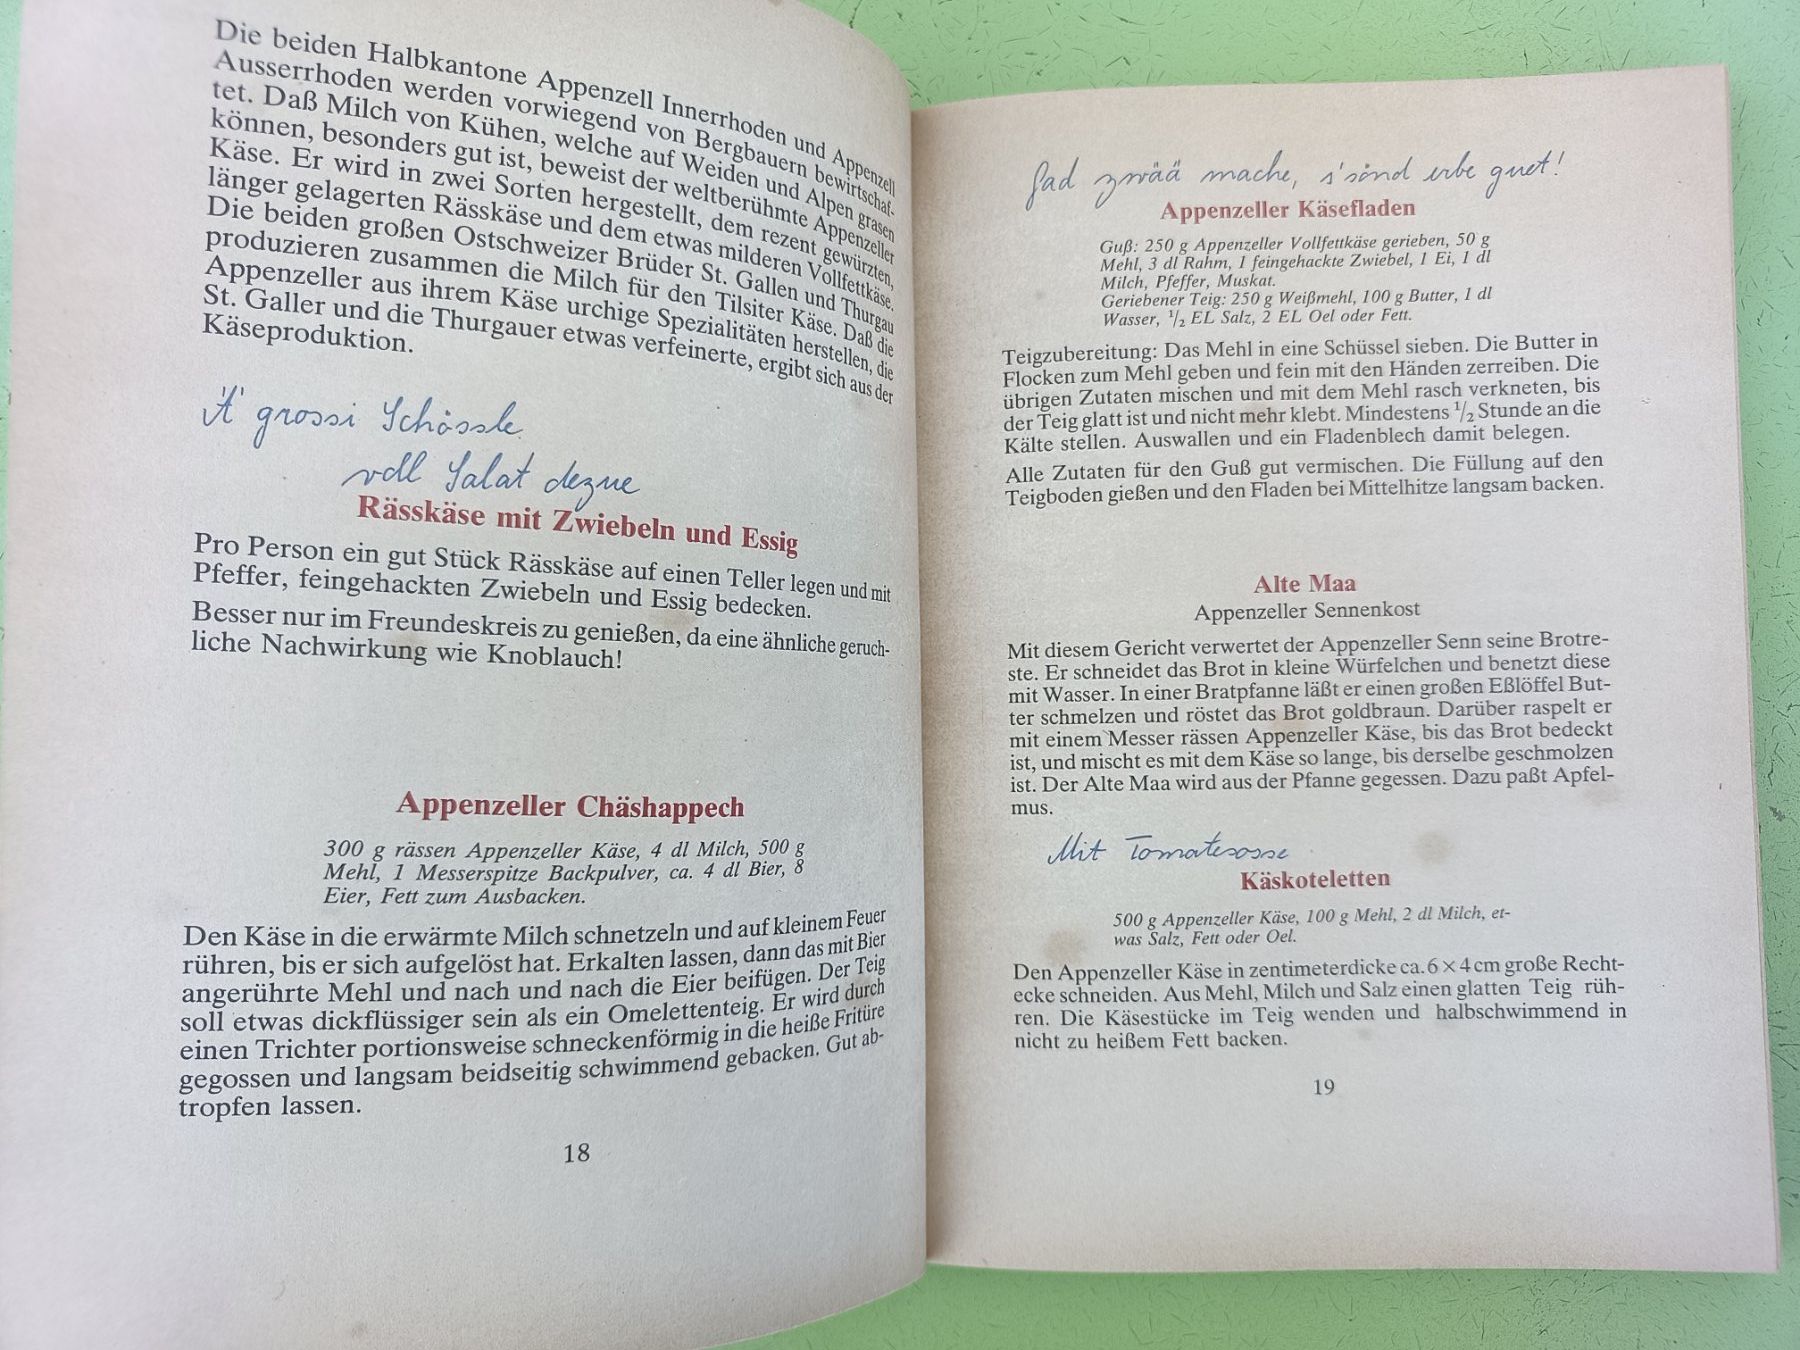 Die beiden Halbkantone Appenzell Innerrhoden und Appenzell
Ausserrhoden werden vorwiegend von Bergbauern bewirtschaf-
tet. Daß Milch von Kühen, welche auf Weiden und Alpen grasen
können, besonders gut ist, beweist der weltberühmte Appenzeller
Käse. Er wird in zwei Sorten hergestellt, dem rezent gewürzten,
länger gelagerten Rässkäse und dem etwas milderen Vollfettkäse.
Die beiden großen Ostschweizer Brüder St. Gallen und Thurgau
produzieren zusammen die Milch für den Tilsiter Käse. Daß die
Appenzeller aus ihrem Käse urchige Spezialitäten herstellen, die
St. Galler und die Thurgauer etwas verfeinerte, ergibt sich aus der
Käseproduktion.
'A' grossi Schössle
voll Salat dezue
Rässkäse mit Zwiebeln und Essig
Pro Person ein gut Stück Rässkäse auf einen Teller legen und mit
Pfeffer, feingehackten Zwiebeln und Essig bedecken.
Besser nur im Freundeskreis zu genießen, da eine ähnliche geruch-
liche Nachwirkung wie Knoblauch!
Appenzeller Chäshappech
300 g rässen Appenzeller Käse, 4 dl Milch, 500 g
Mehl, 1 Messerspitze Backpulver, ca. 4 dl Bier, 8
Eier, Fett zum Ausbacken.
Den Käse in die erwärmte Milch schnetzeln und auf kleinem Feuer
rühren, bis er sich aufgelöst hat. Erkalten lassen, dann das mit Bier
angerührte Mehl und nach und nach die Eier beifügen. Der Teig
soll etwas dickflüssiger sein als ein Omelettenteig. Er wird durch
einen Trichter portionsweise schneckenförmig in die heiße Fritüre
gegossen und langsam beidseitig schwimmend gebacken. Gut ab-
tropfen lassen.
18
Gad zwää mache, s'sönd erbe guet!
Appenzeller Käsefladen
Guß: 250 g Appenzeller Vollfettkäse gerieben, 50 g
Mehl, 3 dl Rahm, 1 feingehackte Zwiebel, 1 Ei, 1 dl
Milch, Pfeffer, Muskat.
Geriebener Teig: 250 g Weißmehl, 100 g Butter, 1 dl
Wasser, 1/2 EL Salz, 2 EL Oel oder Fett.
Teigzubereitung: Das Mehl in eine Schüssel sieben. Die Butter in
Flocken zum Mehl geben und fein mit den Händen zerreiben. Die
übrigen Zutaten mischen und mit dem Mehl rasch verkneten, bis
der Teig glatt ist und nicht mehr klebt. Mindestens 1/2 Stunde an die
Kälte stellen. Auswallen und ein Fladenblech damit belegen.
Alle Zutaten für den Guß gut vermischen. Die Füllung auf den
Teigboden gießen und den Fladen bei Mittelhitze langsam backen.
Alte Maa
Appenzeller Sennenkost
Mit diesem Gericht verwertet der Appenzeller Senn seine Brotre-
ste. Er schneidet das Brot in kleine Würfelchen und benetzt diese
mit Wasser. In einer Bratpfanne läßt er einen großen Eßlöffel But-
ter schmelzen und röstet das Brot goldbraun. Darüber raspelt er
mit einem Messer rässen Appenzeller Käse, bis das Brot bedeckt
ist, und mischt es mit dem Käse so lange, bis derselbe geschmolzen
ist. Der Alte Maa wird aus der Pfanne gegessen. Dazu paßt Apfel-
mus.
Mit Tomatesosse
Käskoteletten
500 g Appenzeller Käse, 100 g Mehl, 2 dl Milch, et-
was Salz, Fett oder Oel.
Den Appenzeller Käse in zentimeterdicke ca. 6 × 4 cm große Recht-
ecke schneiden. Aus Mehl, Milch und Salz einen glatten Teig rüh-
ren. Die Käsestücke im Teig wenden und halbschwimmend in
nicht zu heißem Fett backen.
19